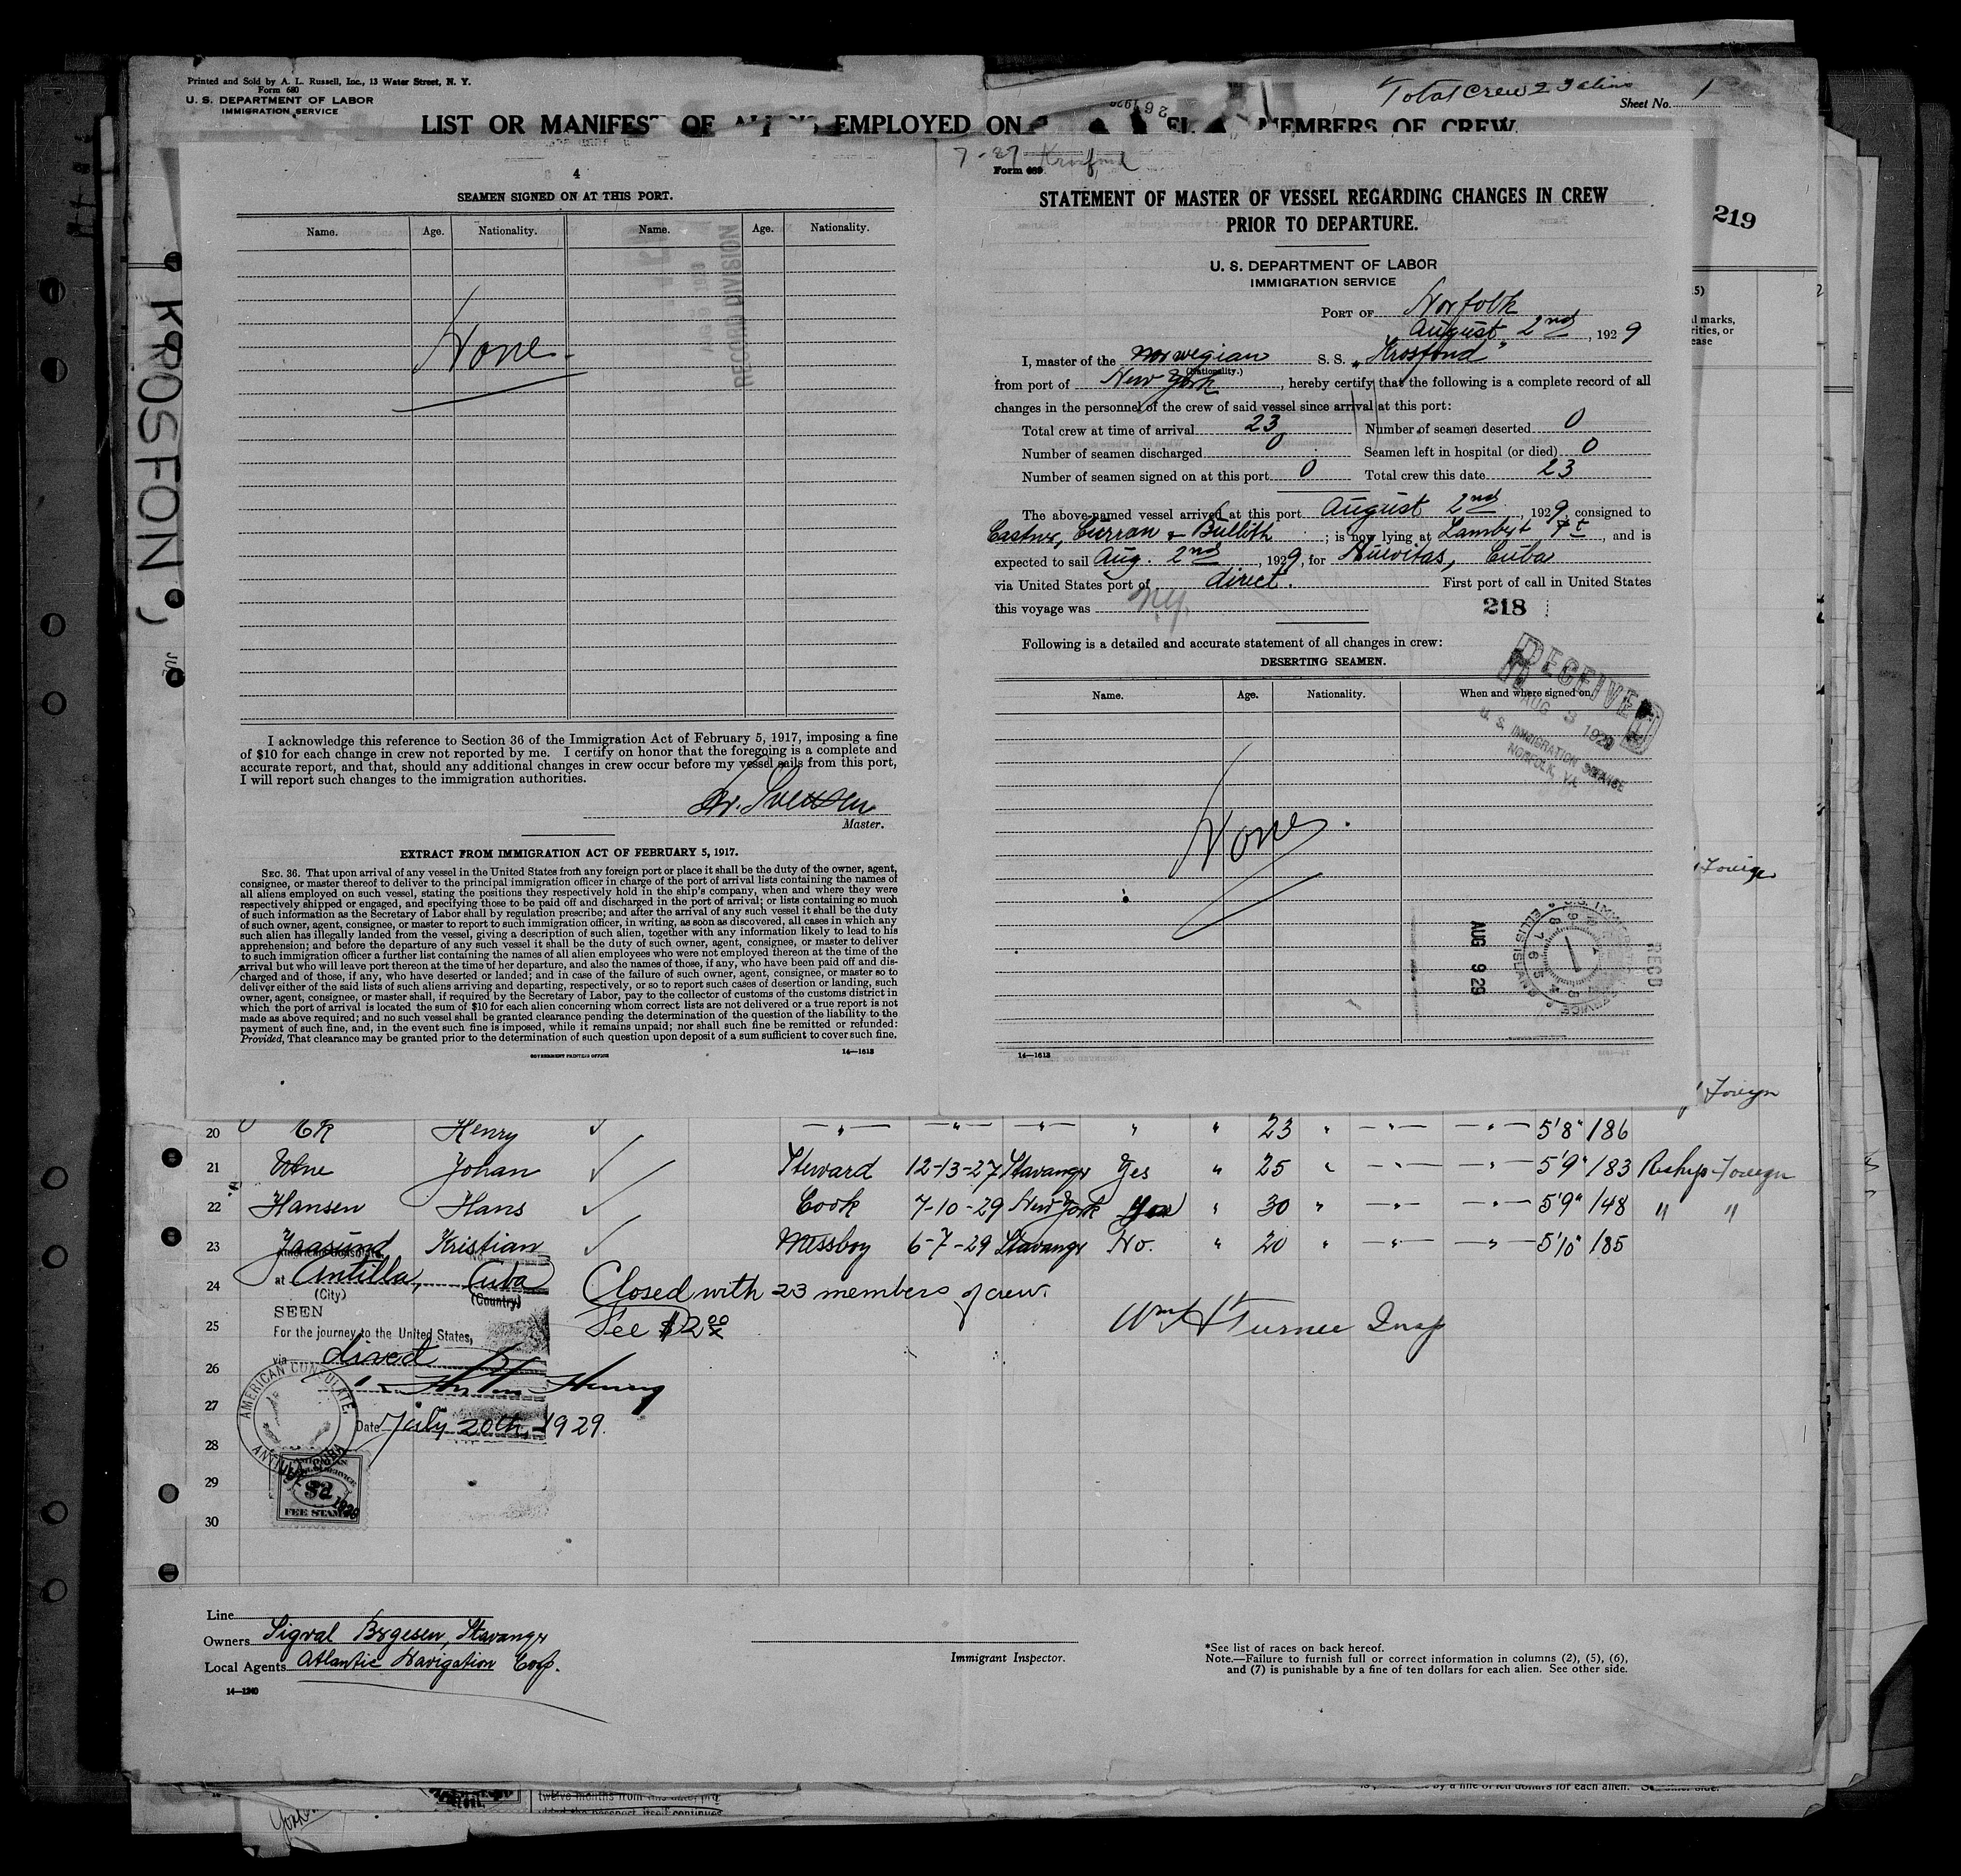 Printed and Sold by A. L. Russell, Inc., 13 Water Street, N. Y.
Form 680
U. S. DEPARTMENT OF LABOR
IMMIGRATION SERVICE
Total Crew 23 aliens
Sheet No. 1
LIST OR MANIFEST OF EMPLOYED ON MEMBERS OF CREW
219
KROSFOND
4
SEAMEN SIGNED ON AT THIS PORT.
Name. Age. Nationality. Name. Age. Nationality.
RECORD DIVISION
None
I acknowledge this reference to Section 36 of the Immigration Act of February 5, 1917, imposing a fine
of $10 for each change in crew not reported by me. I certify on honor that the foregoing is a complete and
accurate report, and that, should any additional changes in crew occur before my vessel sails from this port,
I will report such changes to the immigration authorities.
Master.
EXTRACT FROM IMMIGRATION ACT OF FEBRUARY 5, 1917.
SEC. 36. That upon arrival of any vessel in the United States from any foreign port or place it shall be the duty of the owner, agent,
consignee, or master thereof to deliver to the principal immigration officer in charge of the port of arrival lists containing the names of
all aliens employed on such vessel, stating the positions they respectively hold in the ship's company, when and where they were
respectively shipped or engaged, and specifying those to be paid off and discharged in the port of arrival; or lists containing so much
of such information as the Secretary of Labor shall by regulation prescribe; and after the arrival of any such vessel it shall be the duty
of such owner, agent, consignee, or master to report to such immigration officer, in writing, as soon as discovered, all cases in which any
such alien has illegally landed from the vessel, giving a description of such alien, together with any information likely to lead to his
apprehension; and before the departure of any such vessel it shall be the duty of such owner, agent, consignee, or master to deliver
to such immigration officer a further list containing the names of all alien employees who were not employed thereon at the time of the
arrival but who will leave port thereon at the time of her departure, and also the names of those, if any, who have been paid off and dis-
charged and of those, if any, who have deserted or landed; and in case of the failure of such owner, agent, consignee, or master so to
deliver either of the said lists of such aliens arriving and departing, respectively, or so to report such cases of desertion or landing, such
owner, agent, consignee, or master shall, if required by the Secretary of Labor, pay to the collector of customs of the customs district in
which the port of arrival is located the sum of $10 for each alien concerning whom correct lists are not delivered or a true report is not
made as above required; and no such vessel shall be granted clearance pending the determination of the question of the liability to the
payment of such fine, and, in the event such fine is imposed, while it remains unpaid; nor shall such fine be remitted or refunded:
Provided, That clearance may be granted prior to the determination of such question upon deposit of a sum sufficient to cover such fine.
GOVERNMENT PRINTING OFFICE 14—1613
7-27 Krosfond
Form 689
STATEMENT OF MASTER OF VESSEL REGARDING CHANGES IN CREW
PRIOR TO DEPARTURE.
U. S. DEPARTMENT OF LABOR
IMMIGRATION SERVICE
PORT OF Norfolk
August 2nd, 1929
I, master of the Norwegian S. S. "Krosfond"
(Nationality.)
from port of New York, hereby certify that the following is a complete record of all
changes in the personnel of the crew of said vessel since arrival at this port:
Total crew at time of arrival 23 Number of seamen deserted 0
Number of seamen discharged 0 Seamen left in hospital (or died) 0
Number of seamen signed on at this port 0 Total crew this date 23
The above-named vessel arrived at this port August 2nd, 1929, consigned to
Castner, Curran & Bullitt; is now lying at Lambert Pt, and is
expected to sail Aug. 2nd, 1929, for Nuevitas, Cuba
via United States port of direct. First port of call in United States
this voyage was N.Y.
218
Following is a detailed and accurate statement of all changes in crew:
DESERTING SEAMEN.
Name. Age. Nationality. When and where signed on.
RECEIVED
AUG 3 1929
U. S. IMMIGRATION SERVICE
NORFOLK, VA.
None.
AUG 9 29
RECD
14—1613
Foreign
Foreign
20 Henry 23 5'8" 186
21 Johan Steward 12-13-27 Stavanger Yes " 25 " 5'9" 183 Reship-Foreign
22 Hansen Hans Cook 7-10-29 New York Yes " 30 " 5'9" 148 " "
23 Kristian Messboy 6-7-29 Stavanger No. " 20 " 5'10" 185
at Antilla, Cuba
(City) (Country)
24 Closed with 23 members of crew.
SEEN
25 Fee $2.00 Wm H Turner Insp
For the journey to the United States,
26 via direct
AMERICAN CONSULATE,
ANTILLA, CUBA
27 Date July 20th, 1929.
28
29
$2
FEE STAMP
30
Line
Owners Sigval Bergesen, Stavanger
Local Agents Atlantic Navigation Corp.
14—1240
Immigrant Inspector.
*See list of races on back hereof.
Note.—Failure to furnish full or correct information in columns (2), (5), (6),
and (7) is punishable by a fine of ten dollars for each alien. See other side.